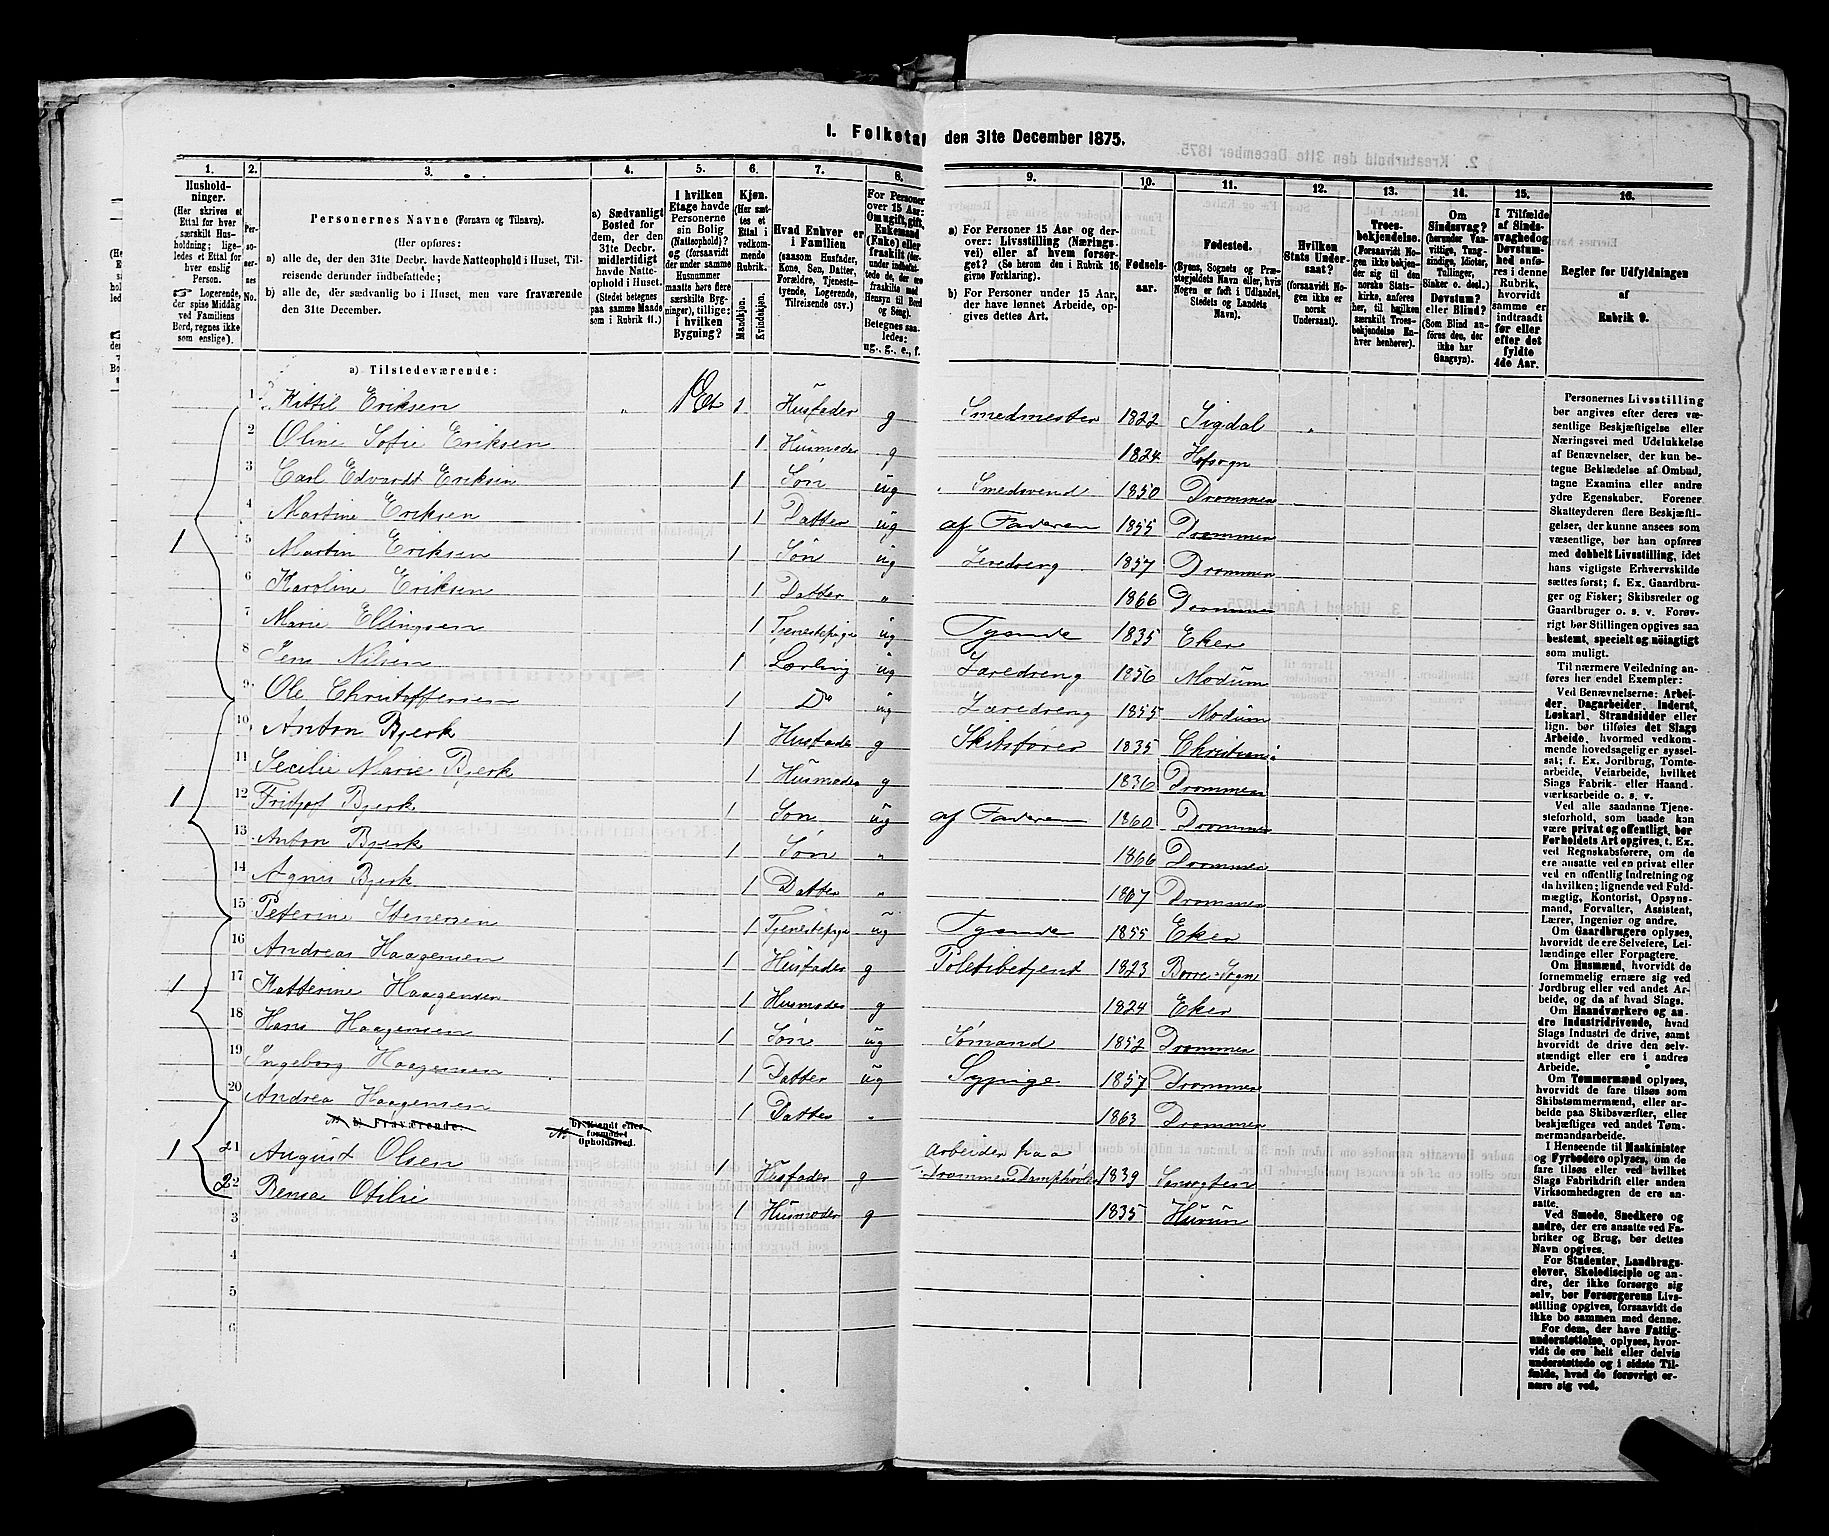 I. Folketal den 31te December 1875.
1. 2. 3. 4. 5. 6. 7. 8. 9. 10. 11. 12. 13. 14. 15. 16.
Husholdninger.
(Her skrives et Ettal for hver særskilt Husholdning; ligeledes et Ettal for hver enslig Person.
Logerende, der spise Middag ved Familiens Bord, regnes ikke som enslige).
Personernes No.
Personernes Navne (Fornavn og Tilnavn).
(Her opføres:
a) alle de, der den 31te Decbr. havde Natteophold i Huset, Tilreisende derunder indbefattede;
b) alle de, der sædvanlig bo i Huset, men vare fraværende den 31te December.
a) Sædvanligt Bosted for dem, der den 31te Decbr. midlertidigt havde Natteophold i Huset. (Stedet betegnes paa samme Maade som i Rubrik 11.)
I hvilken Etage havde Personerne sin Bolig (Natteophold)? og (forsaavidt der under samme Husnummer maatte høre flere særskilte Bygninger), tillige: i hvilken Bygning?
Kjøn. (Her sættes et Ettal i vedkommende Rubrik.
Mandskjøn. Kvindekjøn.
Hvad Enhver er i Familien (saasom Husfader, Kone, Søn, Datter, Forældre, Tjenestetyende, Logerende, Tilreisende osv.)
For Personer over 15 Aar: Om ugift, gift, Enkemand (Enke) eller fraskilt
Betegnes saaledes: ug., g., e., f.
a) For Personer 15 Aar og derover: Livsstilling (Næringsvei) eller af hvem forsørget? (Se herom den i Rubrik 16 givne Forklaring).
b) For Personer under 15 Aar, der have lønnet Arbeide, opgives dettes Art.
Fødselsaar.
Fødested.
(Byens, Sognets og Præstegjeldets Navn eller, hvis Nogen er født i Udlandet, Stedets og Landets Navn).
Hvilken Stats Undersaat? (forsaavidt Nogen ikke er norsk Undersaat).
Troesbekjendelse. (Forsaavidt Nogen ikke bekjender sig til den norske Statskirke, anføres her, til hvilken særskilt Troesbekjendelse Enhver henhører).
Om Sindssvag? (herunder Vanvittige, Tungsindige, Idioter, Tullinger, Sinker o. desl.) Døvstum? eller Blind? (Som Blind anføres den, der ikke har Gangsyn).
I Tilfælde af Sindssvaghed og Døvstumhed anføres i denne Rubrik, hvorvidt samme er indtraadt før eller efter det fyldte 4de Aar.
Regler for Udfyldningen af Rubrik 9.
a) Tilstedeværende:
1 Kittil Eriksen „ 1 Et 1 Husfader g Smedmester 1822 Sigdal
2 Oline Sofie Eriksen 1 Husmoder g 1824 Hofsogn
3 Carl Edvardt Eriksen 1 Søn ug Smedsvend 1850 Drammen
4 Martine Eriksen 1 Datter ug af Faderen 1855 Drammen
1 5 Martin Eriksen 1 Søn ug 1857 Drammen
6 Karoline Eriksen 1 Datter „ 1866 Drammen
7 Marie Ellingsen 1 Tjenestepige ug Tyende 1835 Eker
8 Jens Nilsen 1 Lærling ug Læredreng 1856 Modum
9 Ole Christoffersen 1 Do ug Læredreng 1855 Modum
10 Anton Bjerk 1 Husfader g Skibsfører 1835 Christiania
11 Secilie Marie Bjerk 1 Husmoder g 1836 Drammen
1 12 Fritjof Bjerk 1 Søn ug af Faderen 1860 Drammen
13 Anton Bjerk 1 Søn „ 1866 Drammen
14 Agnes Bjerk 1 Datter „ 1867 Drammen
15 Peterine Stenersen 1 Tjenestepige ug Tyende 1855 Eker
16 Andreas Haagensen 1 Husfader g Politibetjent 1823 Borre Sogn
1 17 Katterine Haagensen 1 Husmoder g 1824 Eker
18 Hans Haagensen 1 Søn ug Sømand 1852 Drammen
19 Ingeborg Haagensen 1 Datter ug Sypige 1857 Drammen
20 Andrea Haagensen 1 Datter „ 1863 Drammen
b) Fraværende.
b) Kjendt eller formodet Opholdssted.
1 21 August Olsen 1 Husfader g Arbeider paa Drammens Damphøvleri 1839
22 Rensa Otilie 1 Husmoder g 1835 Hurun
3
4
5
6
Personernes Livsstilling bør angives efter deres væsentlige Beskjæftigelse eller Næringsvei med Udelukkelse af Benævnelser, der kun betegne Beklædelse af Ombud, tagne Examina eller andre ydre Egenskaber. Forener Skatteyderen flere Beskjæftigelser, der kunne ansees som væsentlige, bør han opføres med dobbelt Livsstilling, idet hans vigtigste Erhvervskilde sættes først; f. Ex. Gaardbruger og Fisker; Skibsreder og Gaardbruger o. s. v. Forøvrigt bør Stillingen opgives saa bestemt, specielt og nøiagtigt som muligt.
Til nærmere Veiledning anføres her endel Exempler:
Ved Benævnelserne: Arbeider, Dagarbeider, Inderst, Løskarl, Strandsidder eller lign. bør tilføies det Slags Arbeide, hvormed vedkommende hovedsagelig er sysselsat; f. Ex. Jordbrug, Tomtearbeide, Veiarbeide, hvilket Slags Fabrik- eller Haandværksarbeide o. s. v.
Ved alle saadanne Tjenesteforhold, som baade kan være privat og offentligt, bør Forholdets Art opgives, t. Ex. ved Regnskabsførere, om de ere ansatte ved en privat eller ved en offentlig Indretning og da hvilken; lignende ved Fuldmægtig, Kontorist, Opsynsmand, Forvalter, Assistent, Lærer, Ingeniør og andre.
Om Gaardbrugere oplyses, hvorvidt de ere Selveiere, Leilændinge eller Forpagtere.
Om Husmænd, hvorvidt de fornemmelig ernære sig ved Jordbrug eller ved andet Arbeide, og da af hvad Slags.
Om Haandværkere og andre Industridrivende, hvad Slags Industri de drive, samt hvorvidt de drive den selvstændigt eller ere i andres Arbeide.
Om Tømmermænd oplyses, hvorvidt de fare tilsøs som Skibstømmermænd, eller arbeide paa Skibsværfter, eller beskjæftiges ved andet Tømmermandsarbeide.
I Henseende til Maskinister og Fyrbødere oplyses, om de fare tilsøs eller ved hvilket Slags Fabrikdrift eller anden Virksomhedsgren de ere ansatte.
Ved Smede, Snedkere og andre, der ere ansatte ved Fabriker og Brug, bør dettes Navn opgives.
For Studenter, Landbrugselever, Skoledisciple og andre, der ikke forsørge sig selv, bør Forsørgerens Livsstilling opgives, forsaavidt de ikke bo sammen med denne.
For dem, der have Fattigunderstøttelse, oplyses, hvorvidt de ere helt eller delvis understøttede og i sidste Tilfælde, hvad de forøvrigt ernære sig ved.